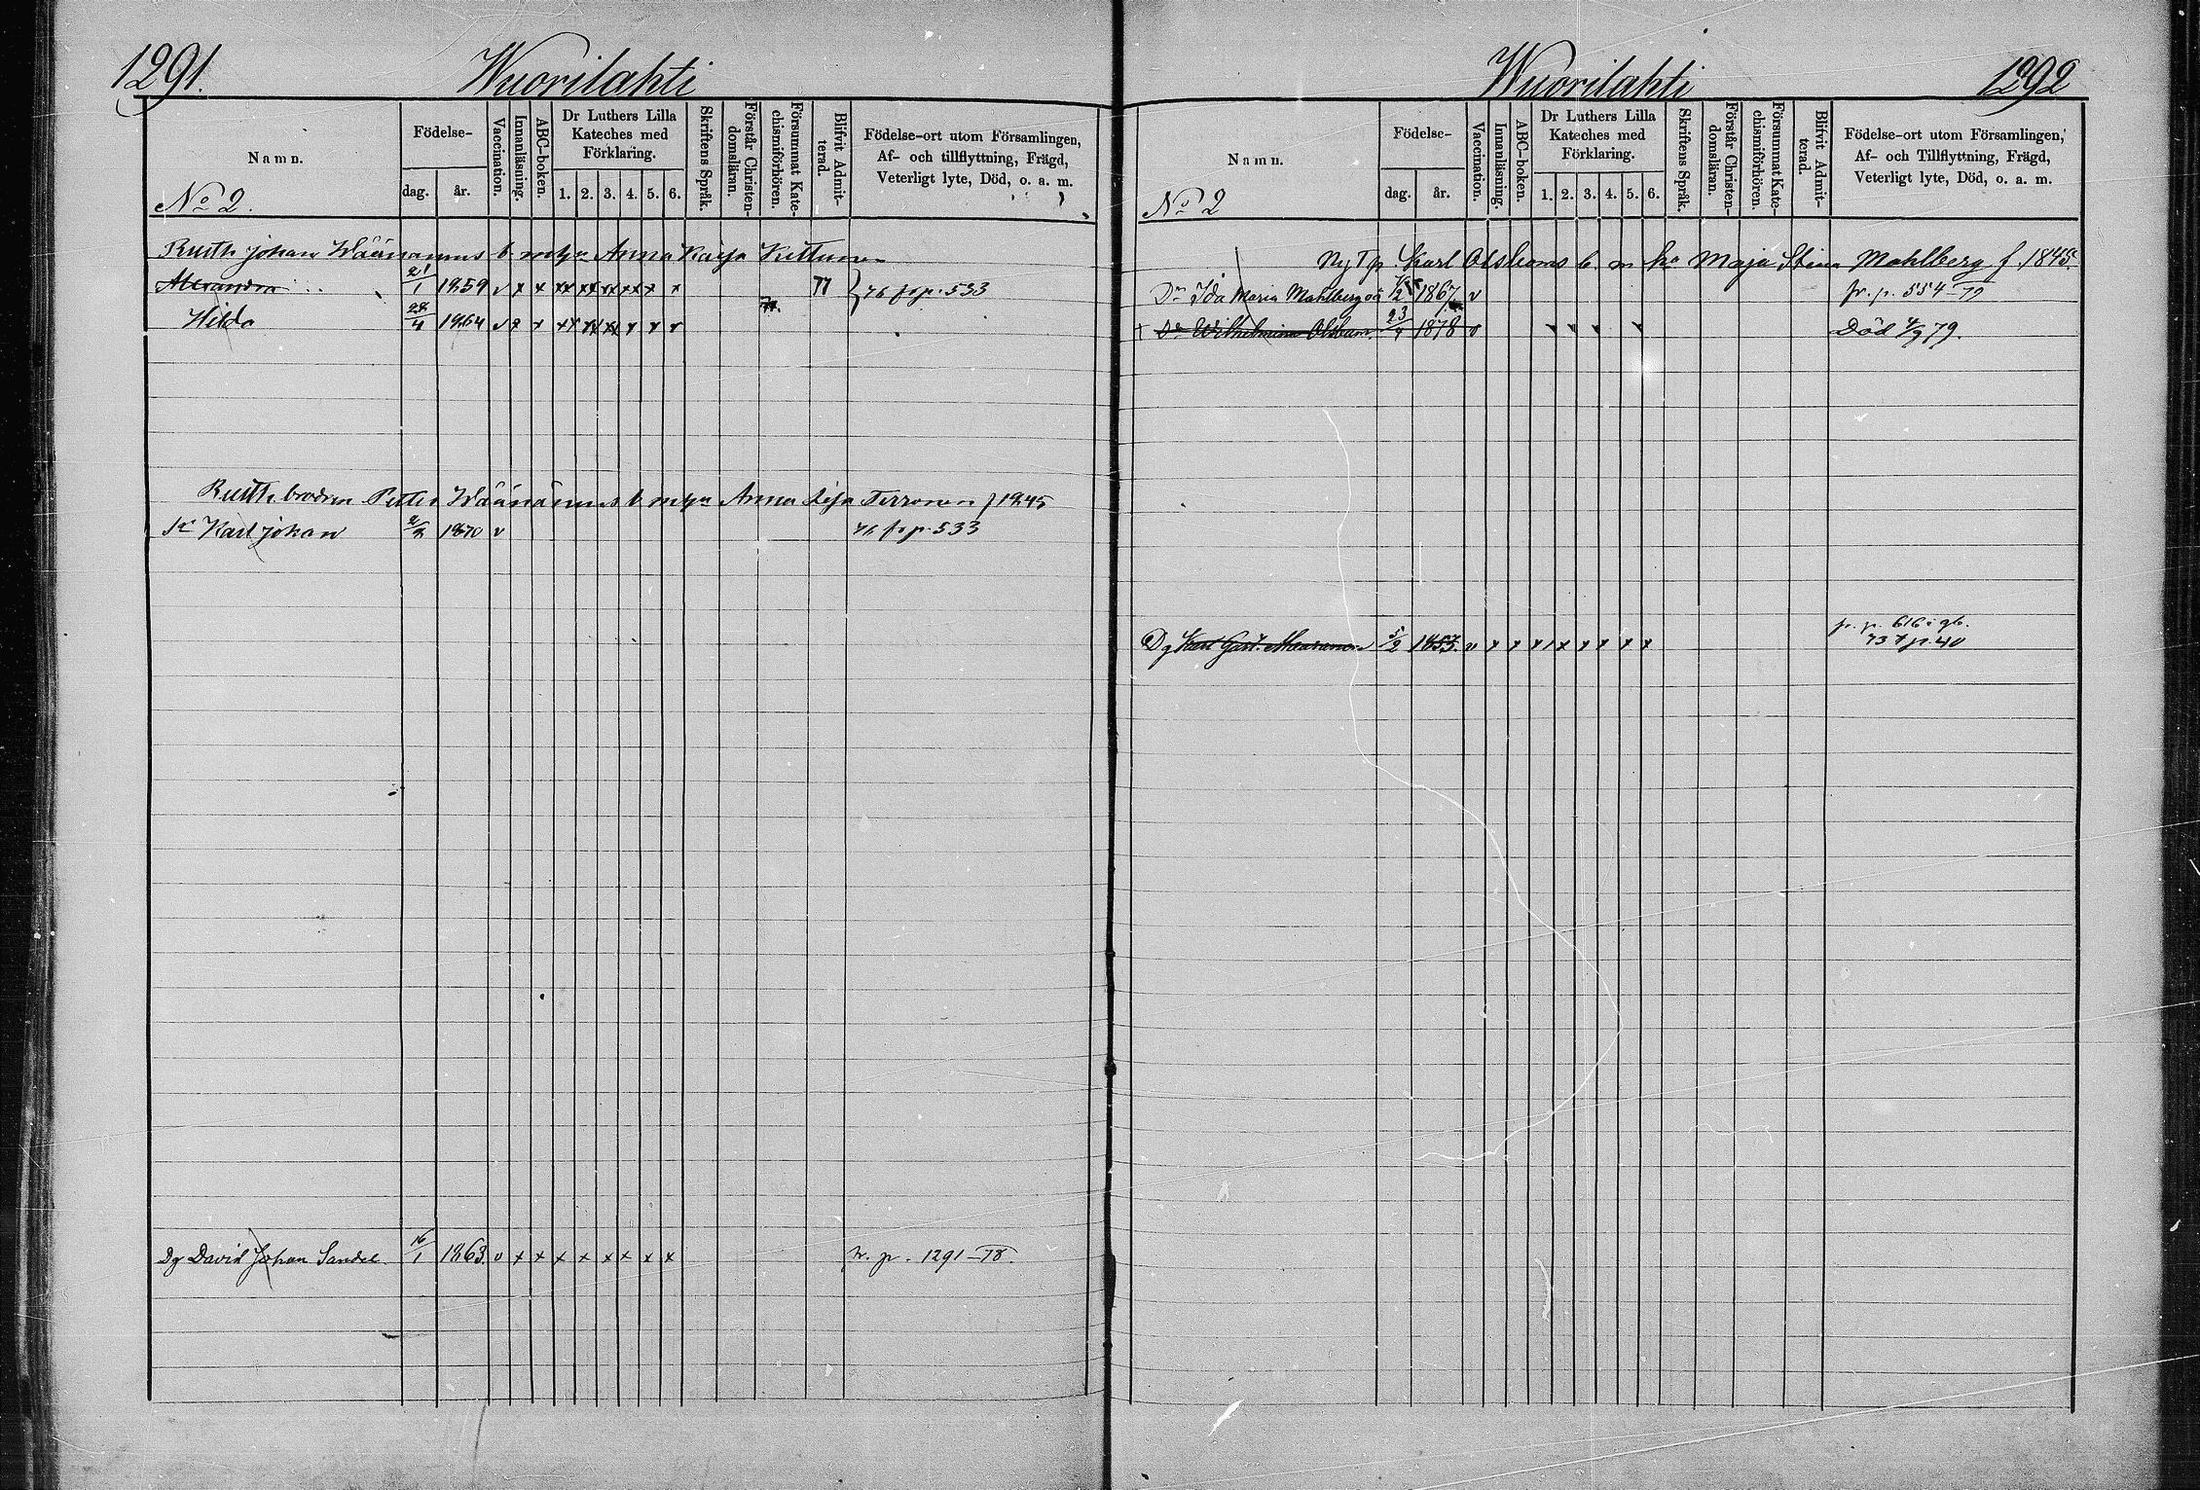 1291.
Wuorilahti
Namn.
Födelse-
dag.
år.
Vaccination.
Innanläsning.
ABC-boken.
Dr Luthers Lilla
Kateches med
Förklaring.
1. 2. 3. 4. 5. 6.
Skriftens Språk.
Förstår Christen-
domsläran.
Försummat Kate-
chismiförhören.
Blifvit Admit-
terad.
Födelse-ort utom Församlingen,
Af- och tillflyttning, Frägd,
Veterligt lyte, Död, o. a. m.
No 2.
Johan Wäänänens b m Anna Kaisa
Alexandra 21/1 1859 v x x xx xx xx xx x x 77 } 76 fr p. 533
Hilda 28/4 1864 v x x xx xx xx x x x
brodren Petter Wäänänens b m Anna Lisa Terronen f 1845
Sn Karl Johan 1870 v 76 fr p. 533
Dg David Johan Sandel 16/1 1863. v x x x x x x x x p. 1291-78.
Wuorilahti
1292
Namn.
Födelse-
dag.
år.
Vaccination.
Innanläsning.
ABC-boken.
Dr Luthers Lilla
Kateches med
Förklaring.
1. 2. 3. 4. 5. 6.
Skriftens Språk.
Förstår Christen-
domsläran.
Försummat Kate-
chismiförhören.
Blifvit Admit-
terad.
Födelse-ort utom Församlingen,
Af- och Tillflyttning, Frägd,
Veterligt lyte, Död, o. a. m.
No 2
Karl b m Maja Stina Mahlberg f. 1845.
Dr Ida Maria Mahlberg 1867 v fr. p. 554-79
Dr Wilhelmina 23/4 1878 v Död 4/9 79.
Dg Karl 5/2 1853. v x x x x x x x x fr. p. 616